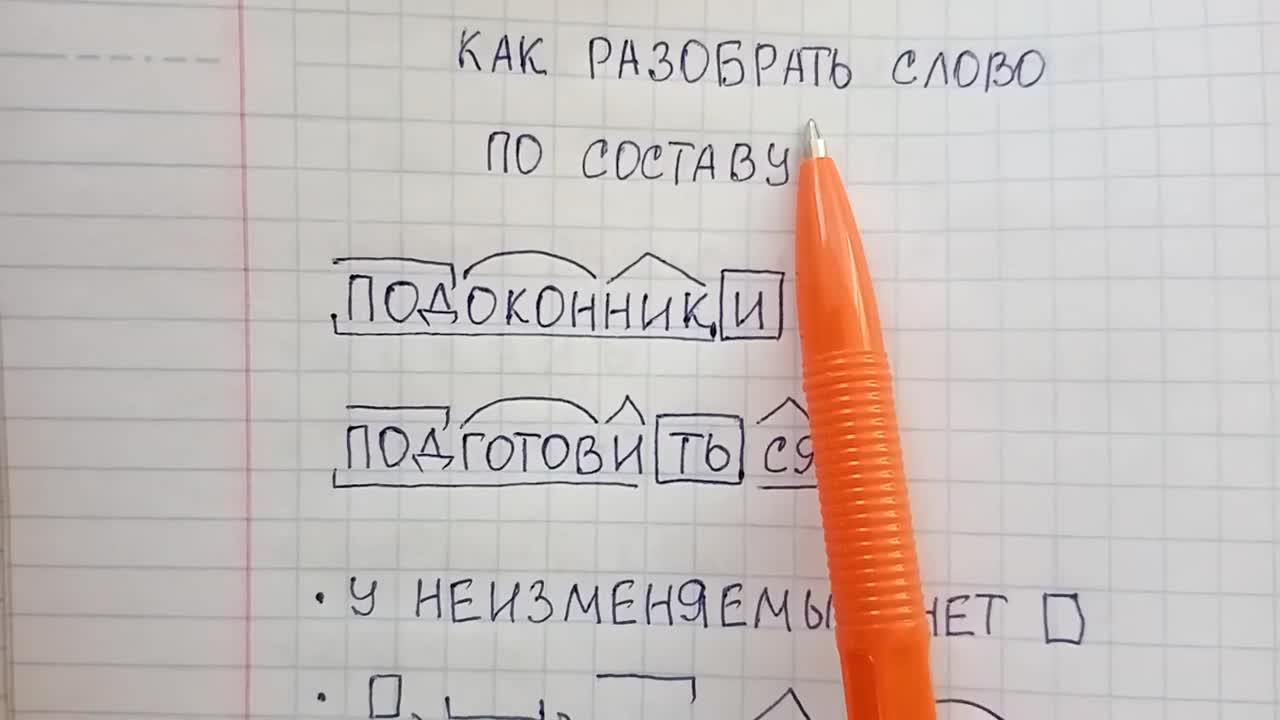 КАК РАЗОБРАТЬ СЛОВО
ПО СОСТАВУ
ПОДОКОННИКИ
ПОДГОТОВИТЬСЯ
• У НЕИЗМЕНЯЕМЫ НЕТ